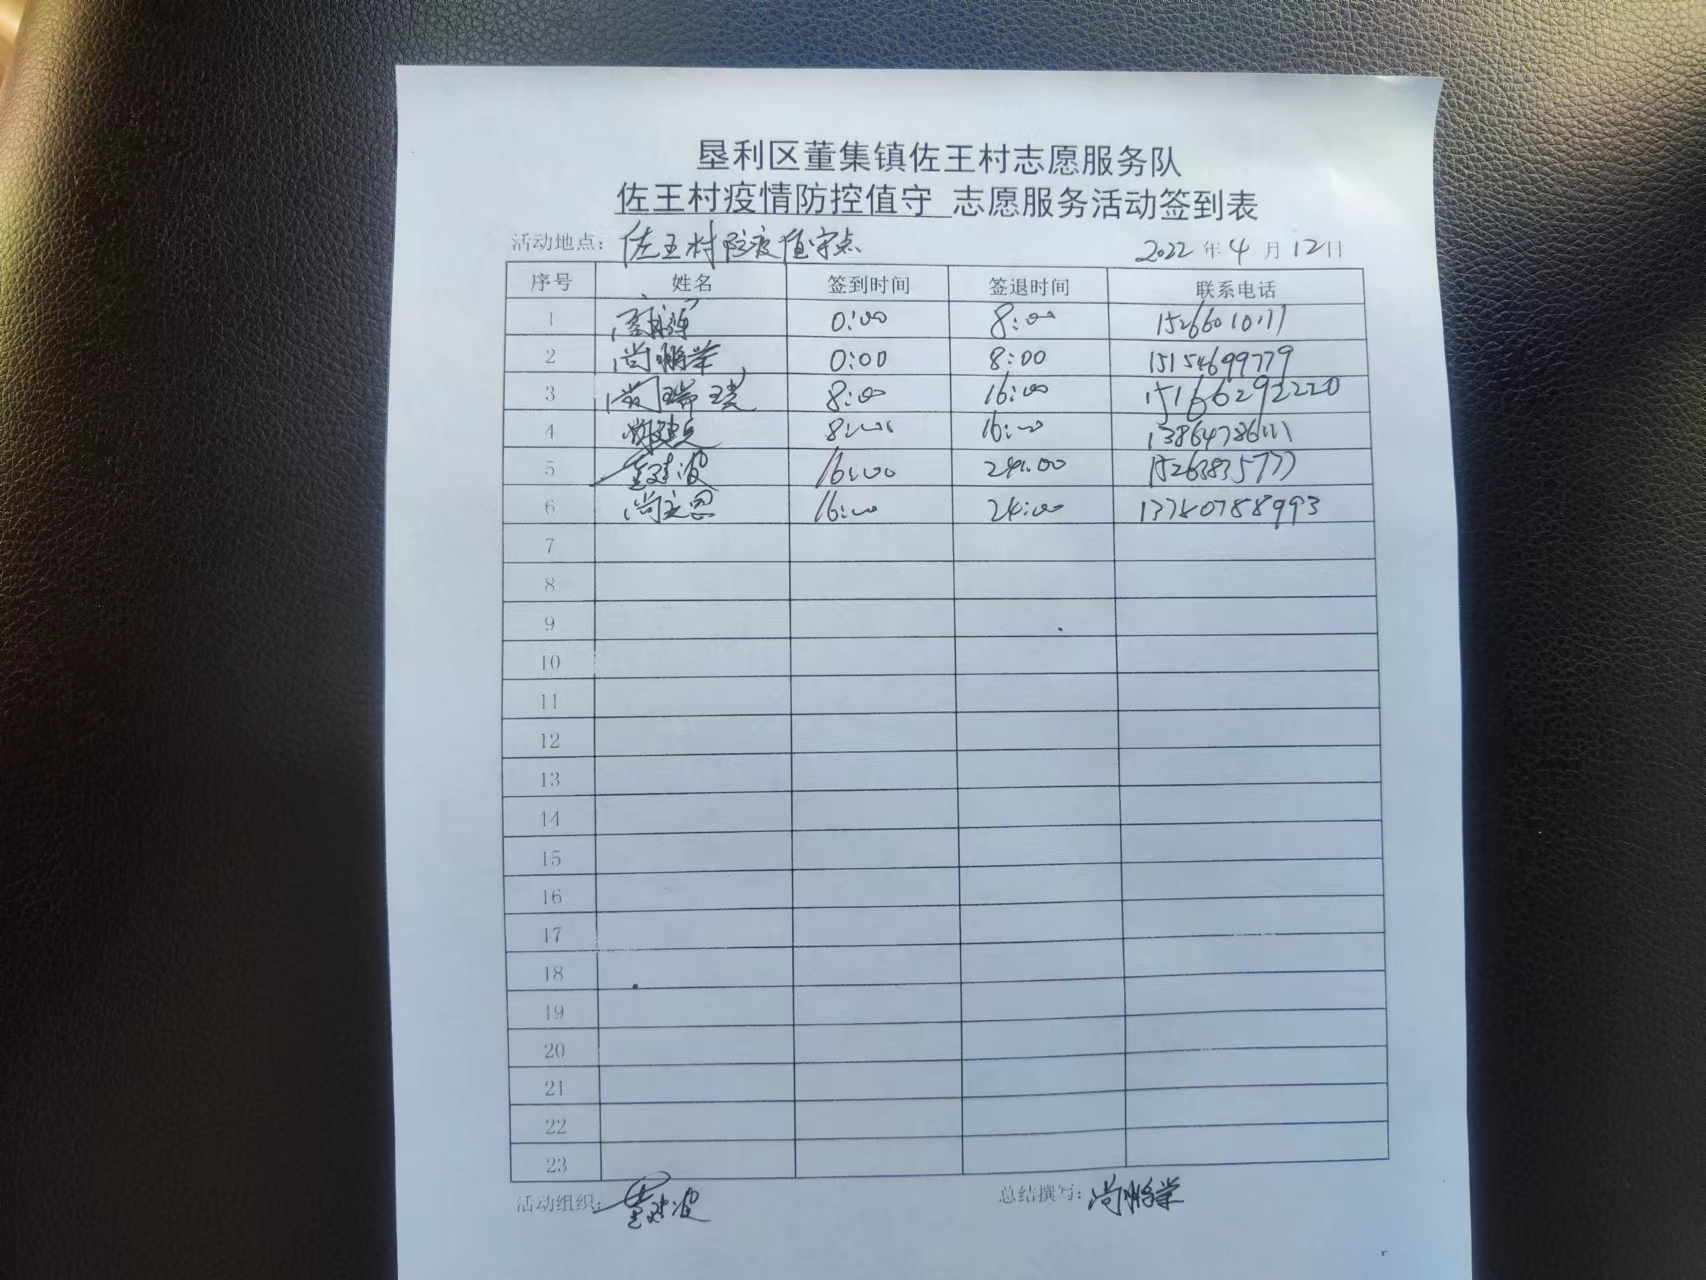 垦利区董集镇佐王村志愿服务队
佐王村疫情防控值守 志愿服务活动签到表
活动地点：佐王村防疫值守点 2022年4月12日
序号 姓名 签到时间 签退时间 联系电话
1 0:00 8:00
2 尚鹏举 0:00 8:00 15154699779
3 尚瑞 8:00 16:00 15166292220
4 8:00 16:00 13864786111
5 建波 16:00 24:00 15263835777
6 尚立恩 16:00 24:00
7
8
9
10
11
12
13
14
15
16
17
18
19
20
21
22
23
活动组织： 建波 总结撰写：尚鹏举